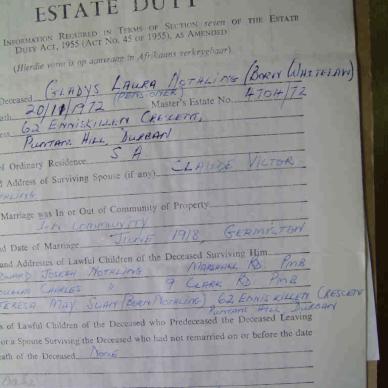 ESTATE DUTY
INFORMATION REQUIRED IN TERMS OF SECTION seven OF THE ESTATE
DUTY ACT, 1955 (ACT No. 45 OF 1955), AS AMENDED
(Hierdie vorm is op aanvraag in Afrikaans verkrygbaar).
Deceased GLADYS LAURA NOTHLING (BORN WHITELAW)
(PENSIONER)
20/11/1972 Master's Estate No. 4704/72
62 ENNISKILLEN CRESCENT,
PUNTANS HILL, DURBAN
of Ordinary Residence S A
d Address of Surviving Spouse (if any) CLAUDE VICTOR
NOTHLING
Marriage was In or Out of Community of Property
IN COMMUNITY
nd Date of Marriage JUNE 1918, GERMISTON
and Addresses of Lawful Children of the Deceased Surviving Him
JOSEPH NOTHLING RD. PMB
CHARLES " 9 CLARK RD. PMB
TERESA MAY JOAN (BORN NOTHLING) 62 ENNISKILLEN CRESCENT
PUNTANS HILL DURBAN
s of Lawful Children of the Deceased who Predeceased the Deceased Leaving
or a Spouse Surviving the Deceased who had not remarried on or before the date
eath of the Deceased NONE